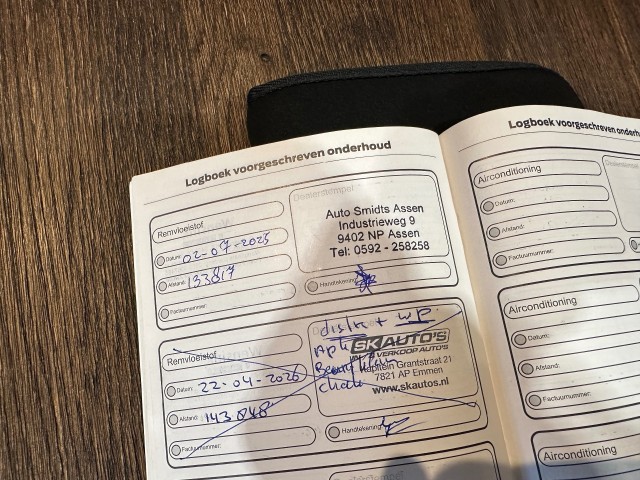 Logboek voorgeschreven onderhoud
Remvloeistof
Datum: 02-07-2025
Afstand: 133817
Factuurnummer:
Dealerstempel:
Auto Smidts Assen
Industrieweg 9
9402 NP Assen
Tel: 0592 - 258258
Handtekening:
Remvloeistof
Datum: 22-04-2026
Afstand: 143048
Factuurnummer:
distr + wp
SKAUTO'S
VERKOOP AUTO'S
Kapitein Grantstraat 21
7821 AP Emmen
www.skautos.nl
Handtekening:
Logboek voorgeschreven onderh
Airconditioning
Datum:
Afstand:
Factuurnummer:
Airconditioning
Datum:
Afstand:
Factuurnummer:
Airconditioning